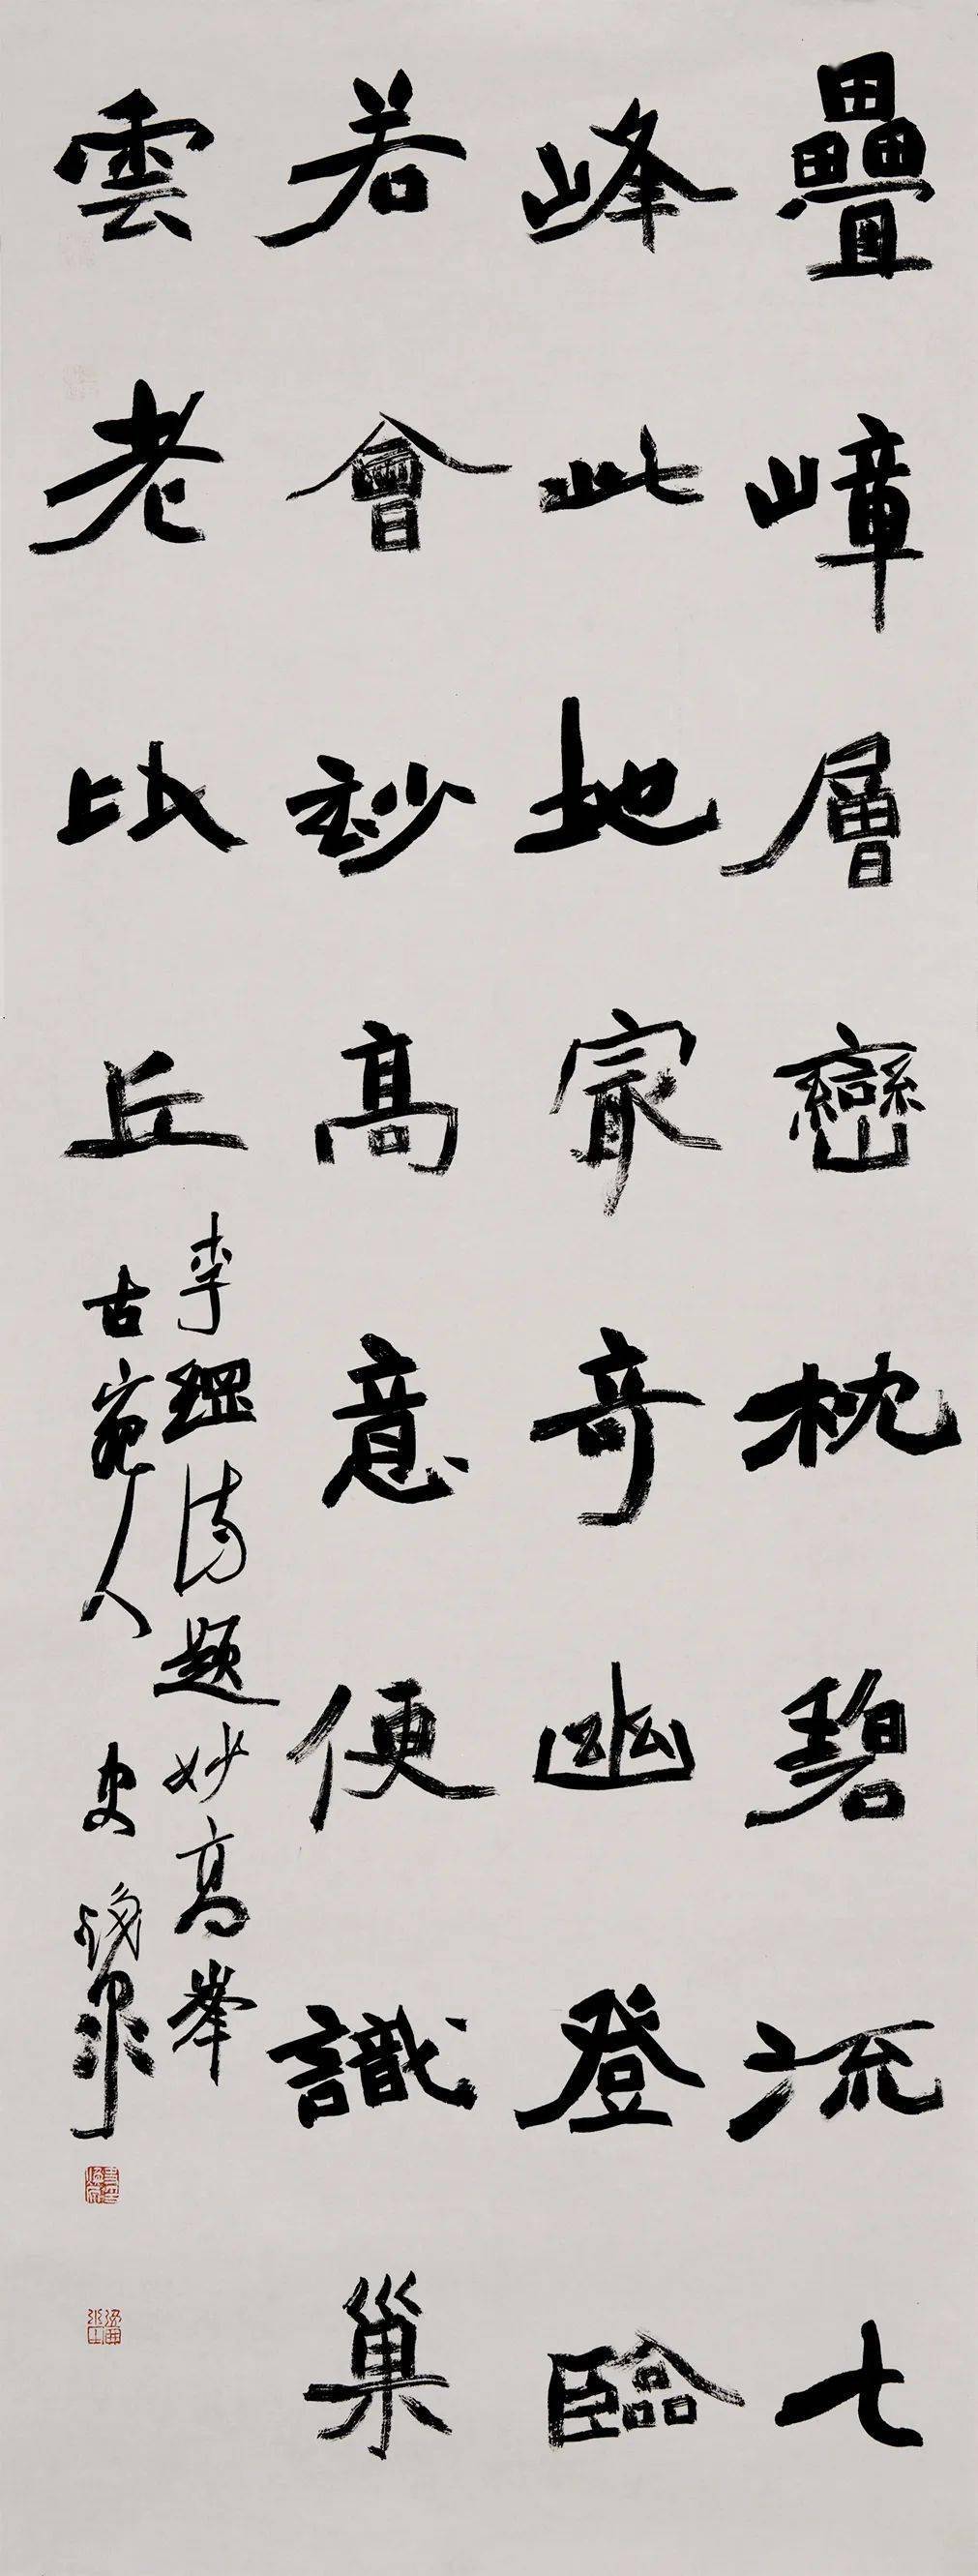 疊嶂層巒枕碧流七
峰此地㝡奇幽登臨
若會玅高意便識巢
雲老比丘
李詩題妙高峯
古宛人史焕泉